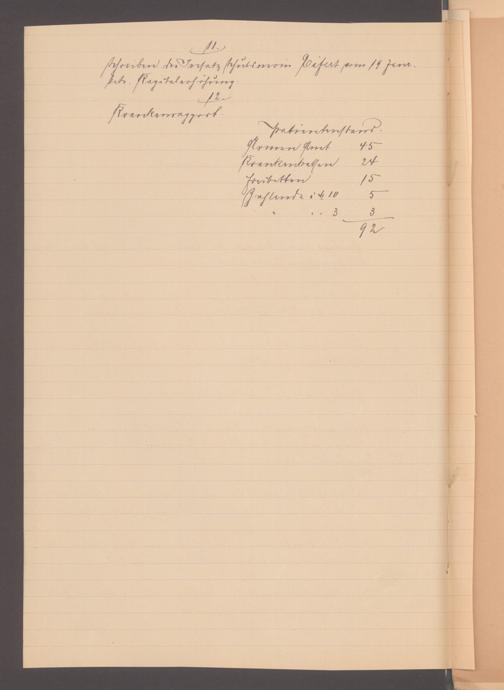 11.
Schreiben des Ersatz Schutzmann Eifert vom 14 Janr.
betr. Kapitalerhöhung
12.
Krankenrapport.
Patientenstand.
Armen Amt 45
Krankenkassen 24
Freibetten 15
Zahlende à M. 10 5
" " " 3 3
92